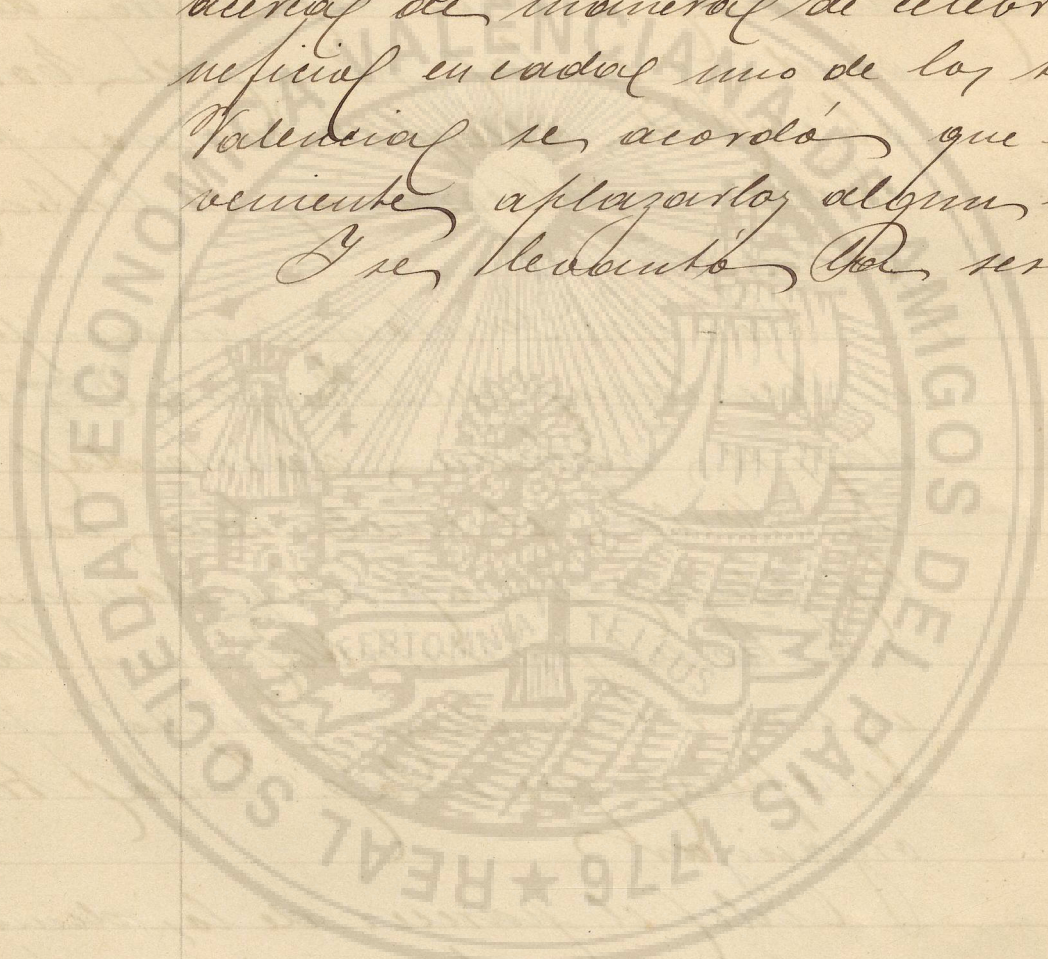 acerca de manera de celebr
neficial en cada uno de los
Valencia se acordó que
veniente aplazarlos algun
Y se levantó la ses
REAL SOCIEDAD ECONOMICA VALENCIANA DE AMIGOS DEL PAIS 1776 ★
FERT OMNIA TELLUS